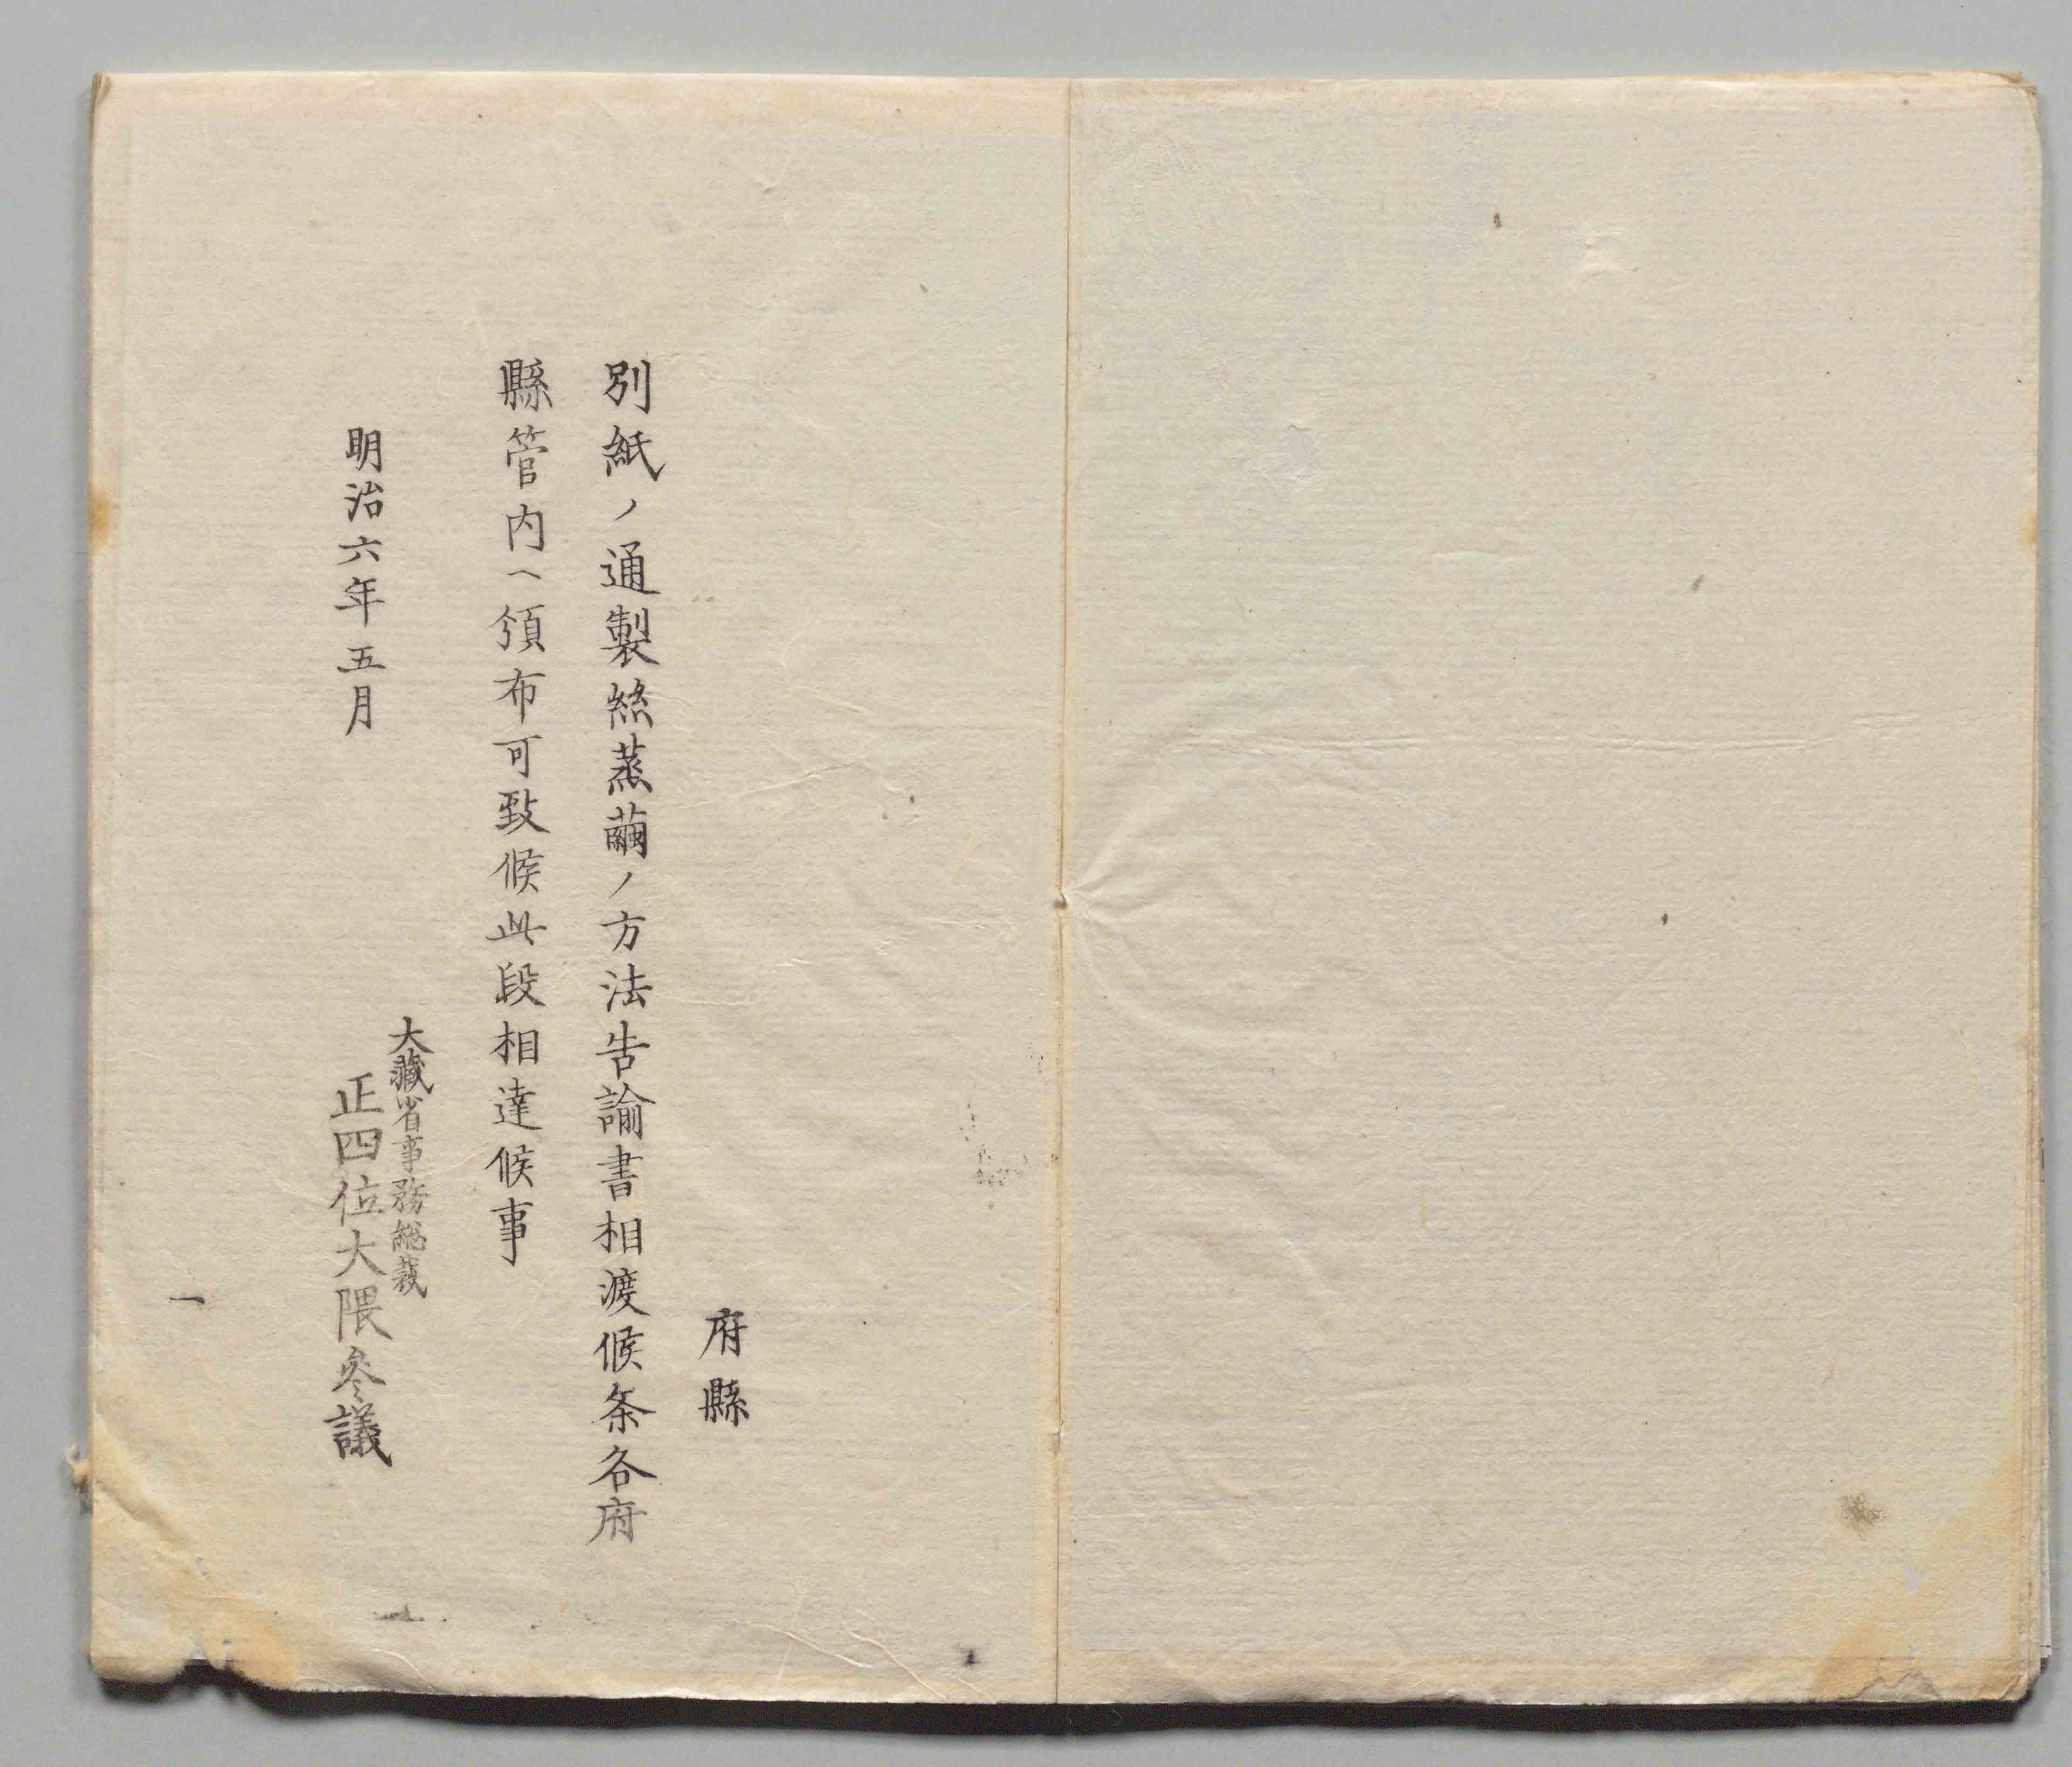 府縣
別紙ノ通製絲蒸繭ノ方法告諭書相渡候条各府
縣管内ヘ頒布可致候此段相達候事
大藏省事務総裁
明治六年五月　正四位大隈參議
一